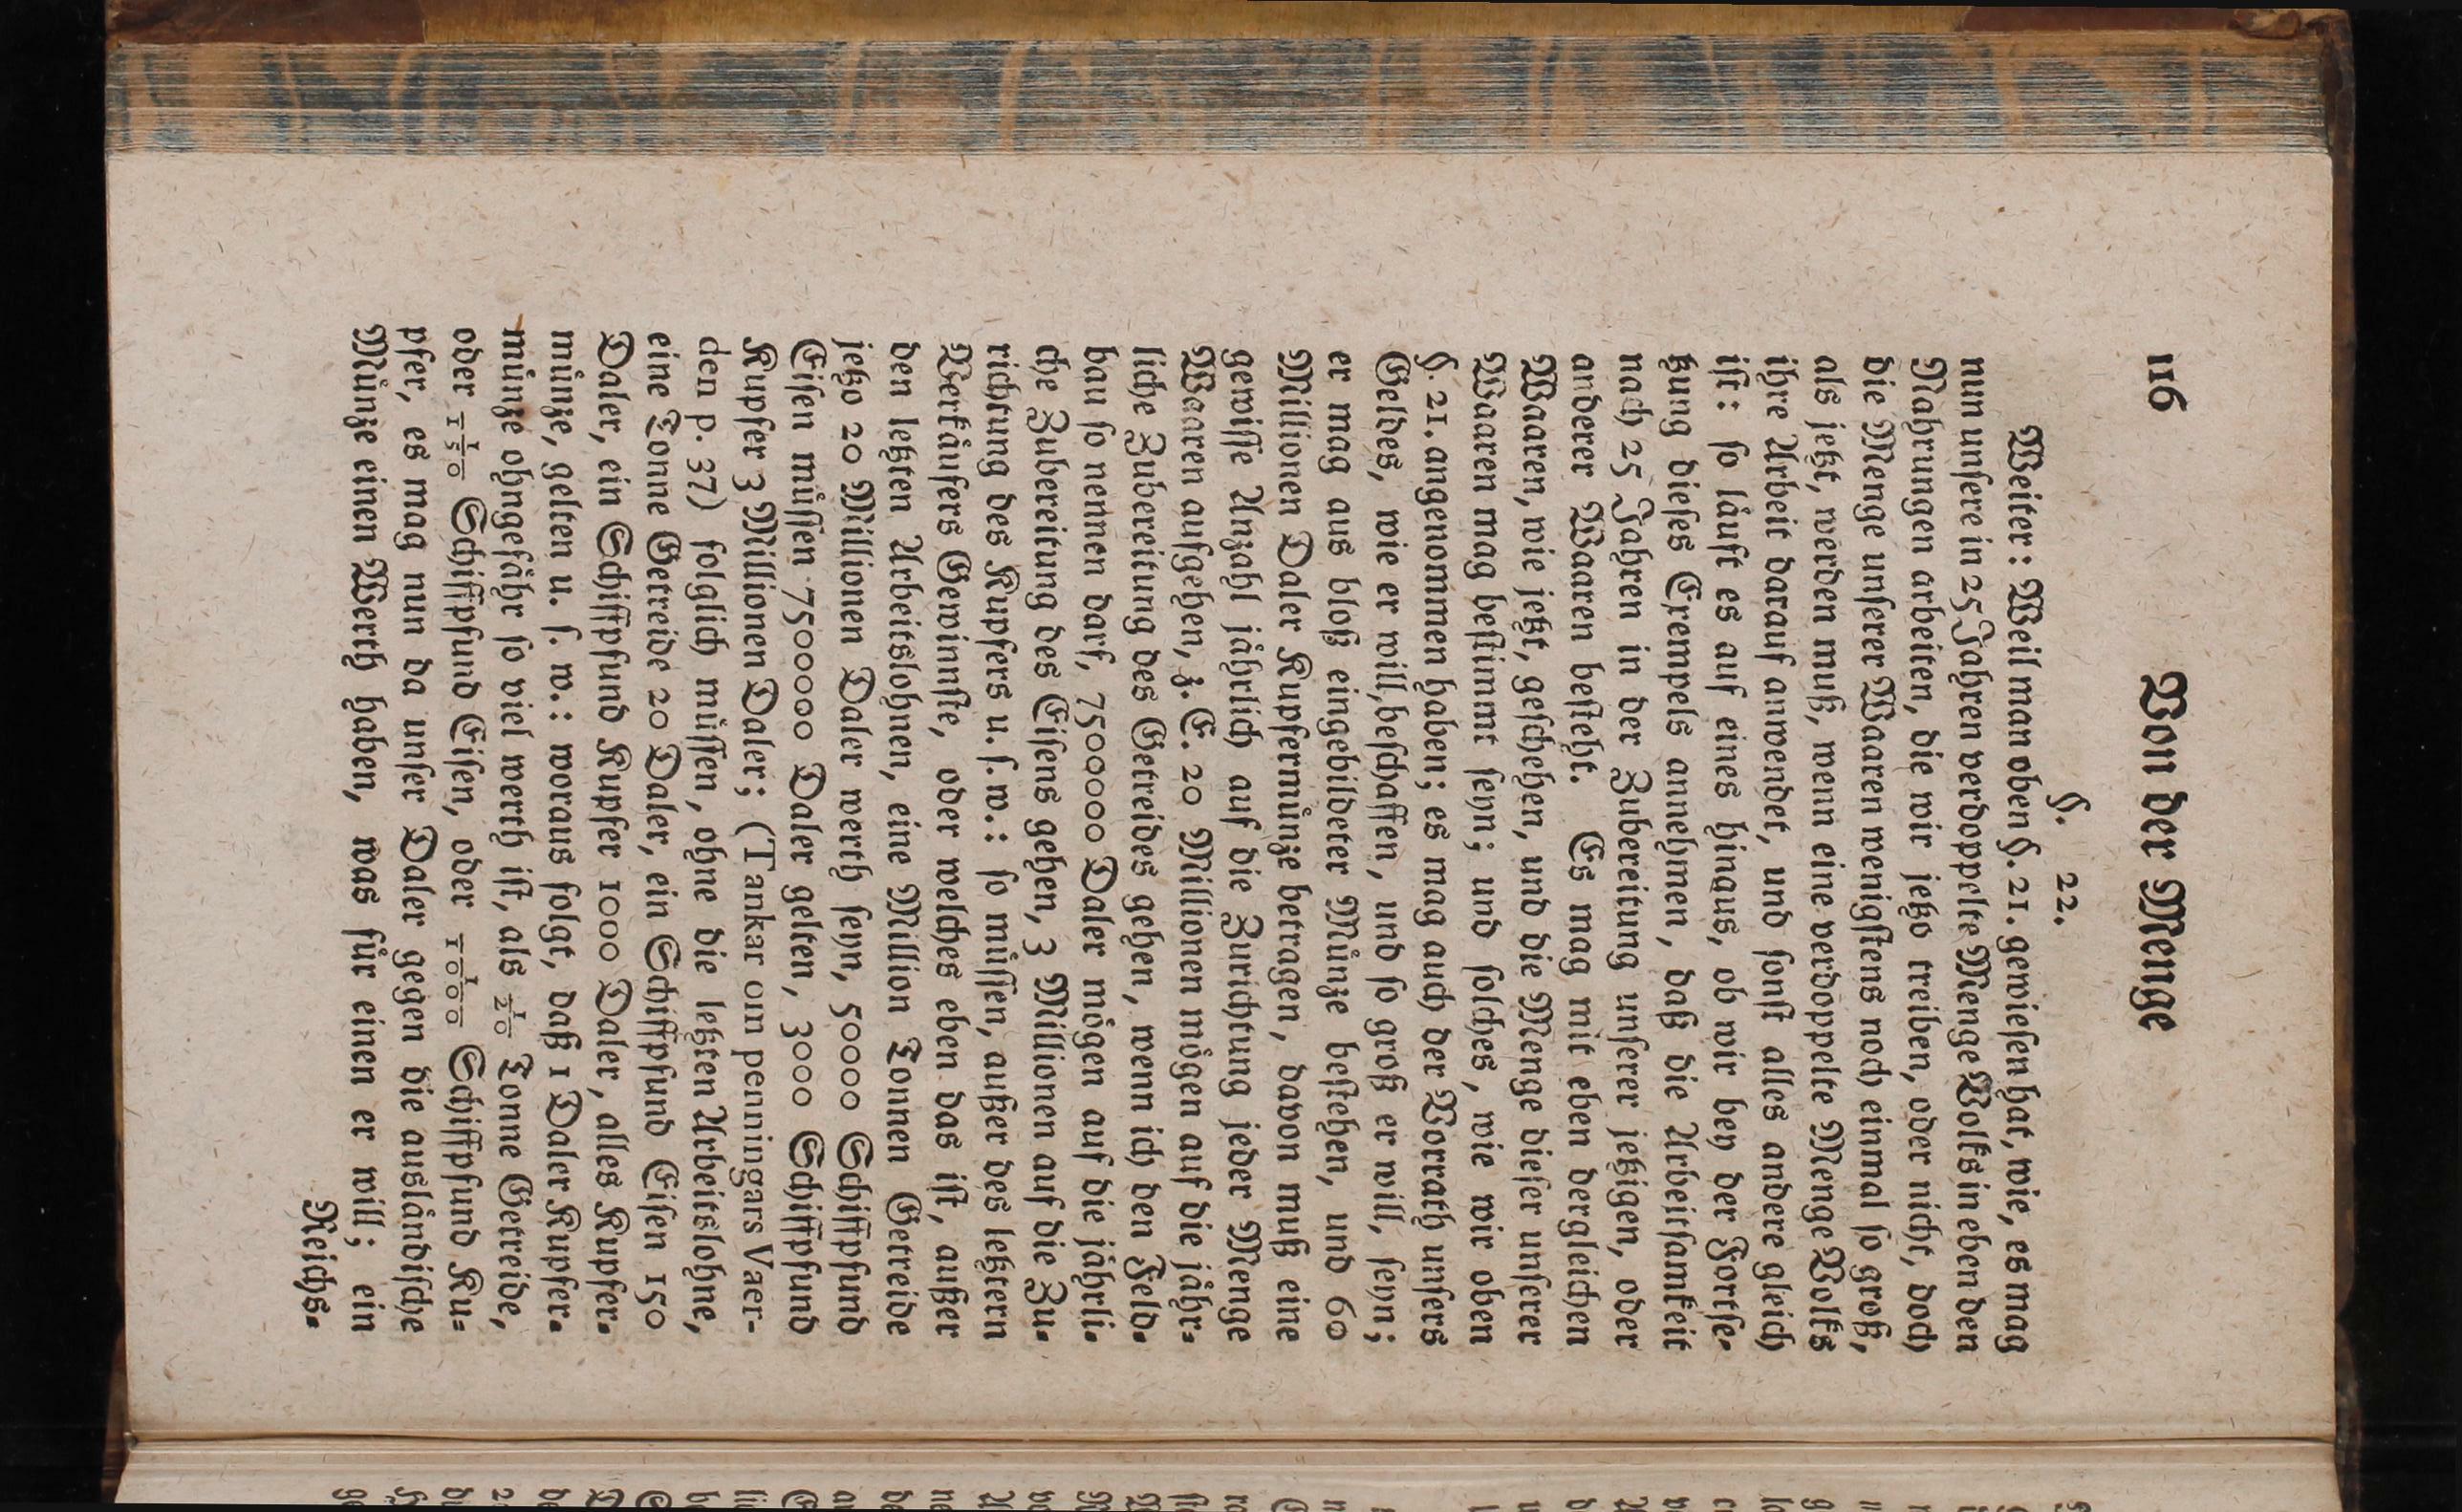 116 Von der Menge
§. 22.
Weiter: Weil man oben §. 21. gewiesen hat, wie, es mag
nun unsere in 25 Jahren verdoppelte Menge Volks in eben den
Nahrungen arbeiten, die wir jetzo treiben, oder nicht, doch
die Menge unserer Waaren wenigstens noch einmal so groß,
als jetzt, werden muß, wenn eine verdoppelte Menge Volks
ihre Arbeit darauf anwendet, und sonst alles andere gleich
ist: so läuft es auf eines hinaus, ob wir bey der Fortse-
tzung dieses Exempels annehmen, daß die Arbeitsamkeit
nach 25 Jahren in der Zubereitung unserer jetzigen, oder
anderer Waaren besteht. Es mag mit eben dergleichen
Waaren, wie jetzt, geschehen, und die Menge dieser unserer
Waaren mag bestimmt seyn; und solches, wie wir oben
§. 21. angenommen haben; es mag auch der Vorrath unsers
Geldes, wie er will, beschaffen, und so groß er will, seyn;
er mag aus bloß eingebildeter Münze bestehen, und 60
Millionen Daler Kupfermünze betragen, davon muß eine
gewisse Anzahl jährlich auf die Zurichtung jeder Menge
Waaren aufgehen, z. E. 20 Millionen mögen auf die jähr-
liche Zubereitung des Getreides gehen, wenn ich den Feld-
bau so nennen darf, 7500000 Daler mögen auf die jährli-
che Zubereitung des Eisens gehen, 3 Millionen auf die Zu-
richtung des Kupfers u. s. w.: so müssen, außer des letztern
Verkäufers Gewinnste, oder welches eben das ist, außer
den letzten Arbeitslohnen, eine Million Tonnen Getreide
jetzo 20 Millionen Daler werth seyn, 50000 Schiffpfund
Eisen müssen 7500000 Daler gelten, 3000 Schiffpfund
Kupfer 3 Millionen Daler; (Tankar om penningars Vaer-
den p. 37) folglich müssen, ohne die letzten Arbeitslohne,
eine Tonne Getreide 20 Daler, ein Schiffpfund Eisen 150
Daler, ein Schiffpfund Kupfer 1000 Daler, alles Kupfer-
münze, gelten u. s. w.: woraus folgt, daß 1 Daler Kupfer-
münze ohngefähr so viel werth ist, als 1/20 Tonne Getreide,
oder 1/150 Schiffpfund Eisen, oder 1/1000 Schiffpfund Ku-
pfer, es mag nun da unser Daler gegen die ausländische
Münze einen Werth haben, was für einen er will; ein
Reichs-